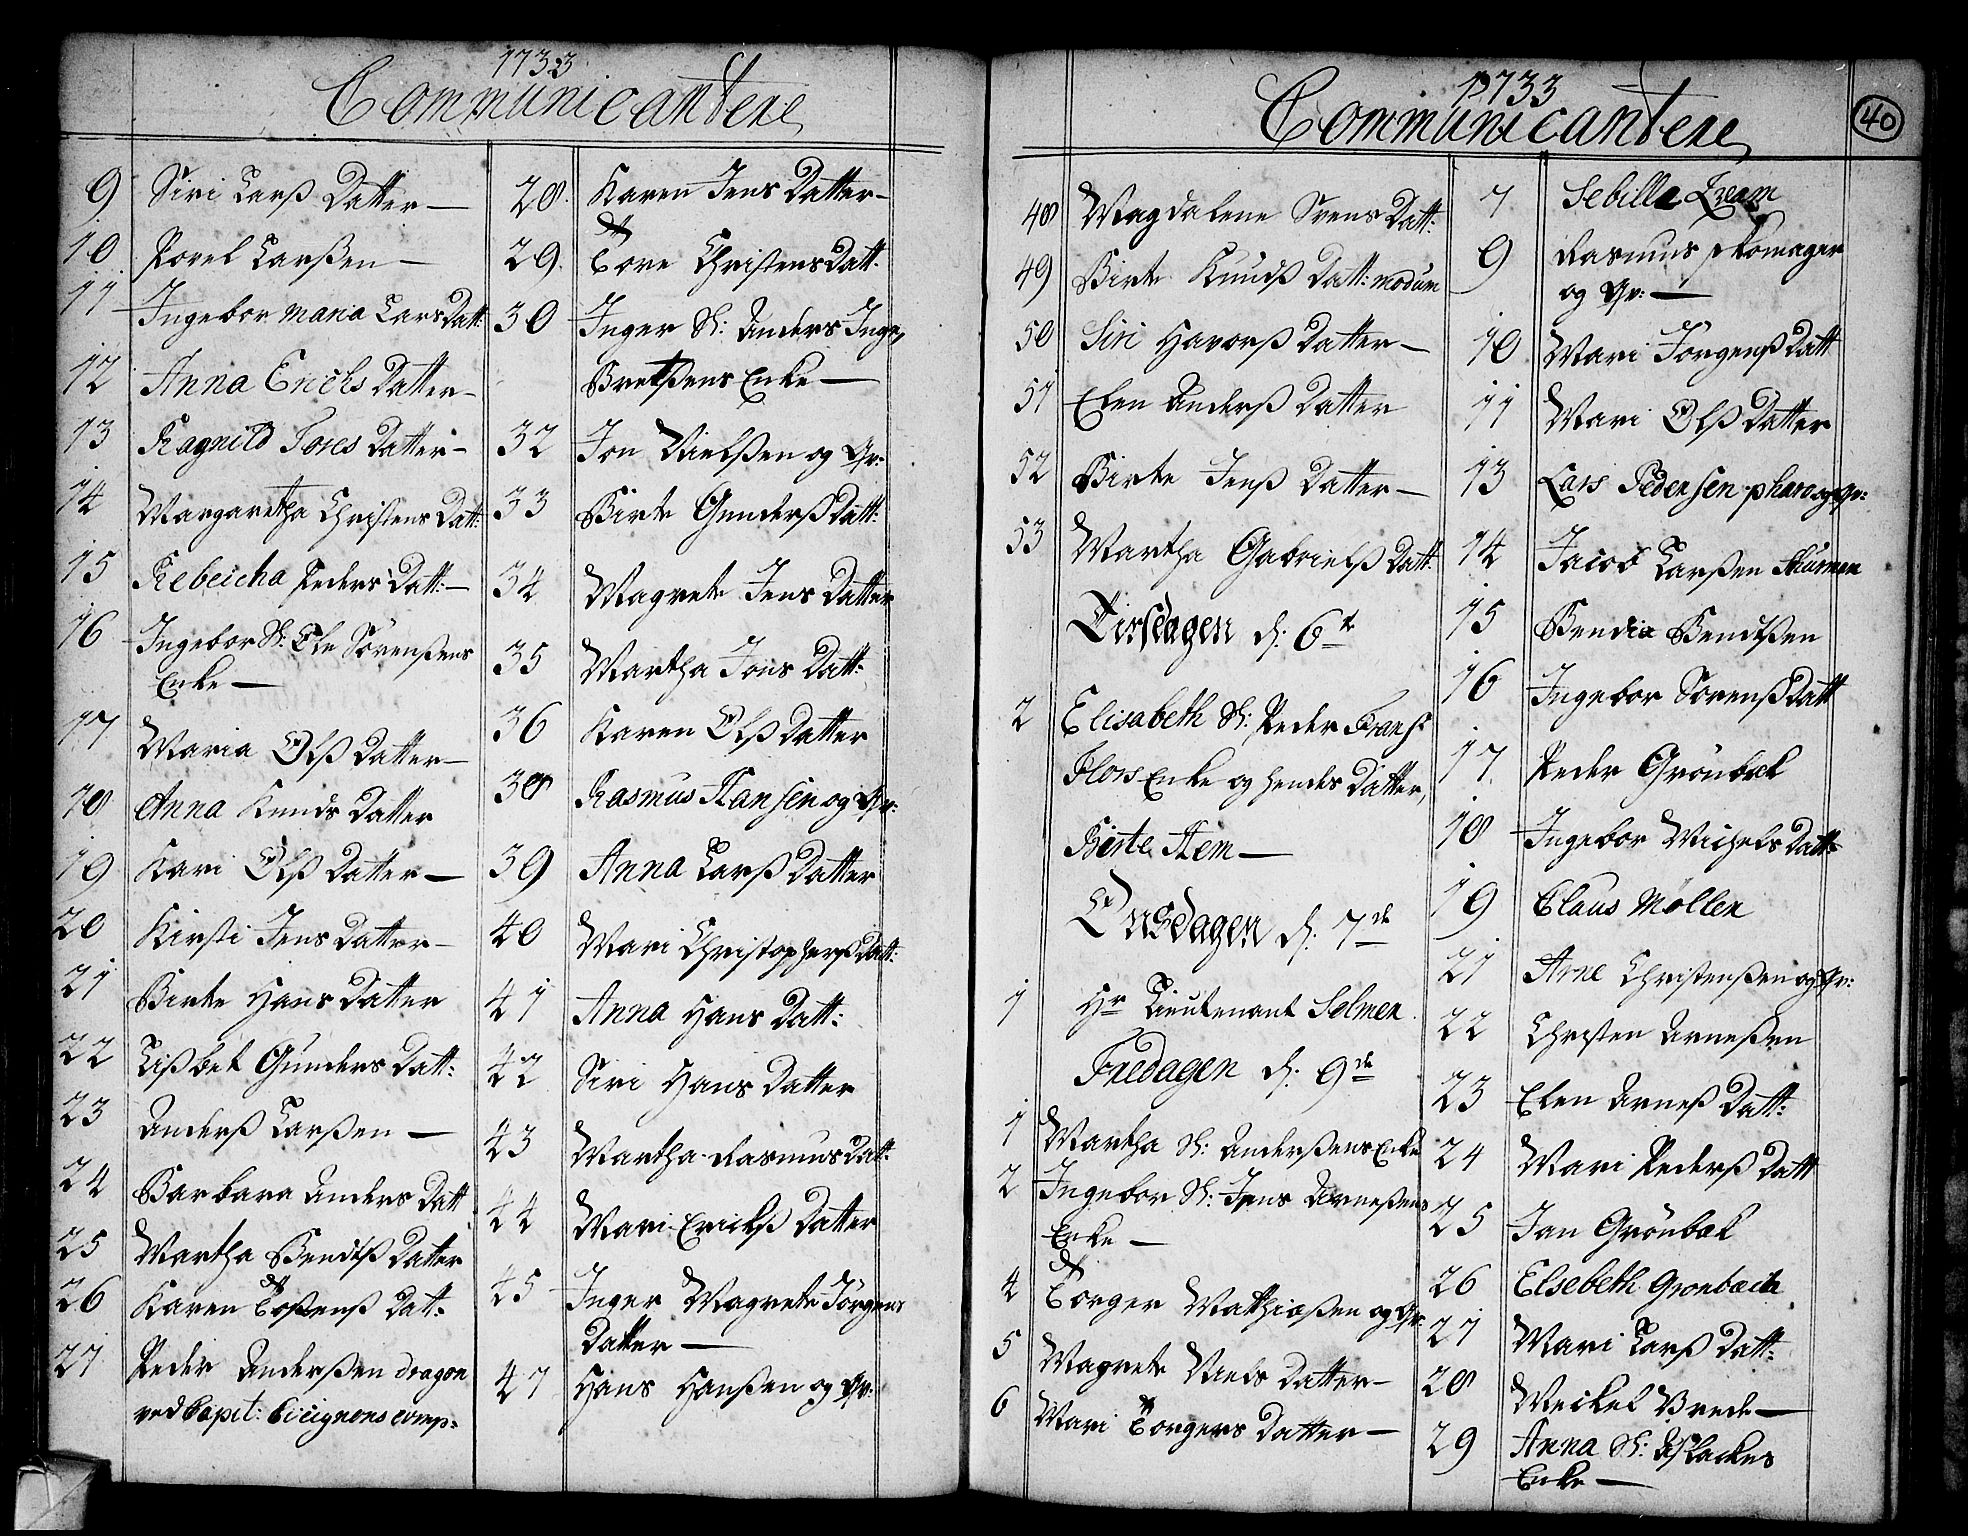 1733
Communicantere
9 Siri Larß Datter
10 Povel Larßen
11 Ingebor Maria LarsDatt:
12 Anna Erichs Datter
13 Ragnild Tores Datter
14 Margaretha Christens Datt:
15 Rebeicha Peders Datt:
16 Ingebor Sl: Ole Sörenßens
Enke
17 Maria Olß Datter
18 Anna Knuds Datter
19 Kari Olß Datter
20 Kirsti Jens Datter
21 Birte Hans Datter
22 Lißbet Gunders Datt:
23 Anderß Larßen
24 Barbara Anders Datt
25 Martha Bendtß Datter
26 Karen Toßenß Datt:
27 Peder Anderßen dragon
ved Capit: Cicignons comp:
28. Karen Jens Datter
29. Tore Christens Datt.
30 Inger Sl: Anders Inge,
Bretßens Enke
32 Jon Nielßen og Qv:
33 Birte Gunderß Datt:
34 Magrete Jens Datter
35 Martha Jons Datt:
36 Karen Olß Datter
38 Rasmus Hansen og Qv:
39 Anna Larß Datter
40 Mari Christopherß Datt:
41 Anna Hans Datt:
42 Siri Hans Datter
43 Martha Rasmus Datt:
44 Mari Erichß Datter
45 Inger Magrete Jörgens
Datter
47 Hans Hanßen og Qv:
1733
Communicantere
40
48 Magdalene Svens Datt:
49 Birte Knudß Datt: modum
50 Siri Havorß Datter
51 Elen Anderß Datter
52 Birte Jenß Datter
53 Martha Gabrielß Datt:
Tirsdagen d. 6te
2 Elisabeth Sl: Peder Frans:
Flors Enke og hendes Datter,
Birte Hem
Onsdagen d. 7de
1 Hr Lieutenant Solmer
Fredagen d. 9de
1 Martha Sl: Anderßens Enke
2 Ingebor Sl: Jens Arneßens
Enke
4 Torger Mathiaßen og Qv:
5 Magrete Niels Datter
6 Mari Torgers Datter
7 Sebilla
9 Rasmus Skomager
og Qv:
10 Mari Jörgenß Datt
11 Mari Olß Datter
13 Lars Pedersen pharo og Qv:
14 Jacob Larßen
15 Bendix Bendtßen
16 Ingebor Sörenß Datt
17. Peder Grönbæk
18 Ingebor Michels Datt:
19 Claus Møller
21 Arne Christenßen og Qv:
22 Christen Arneßen
23 Elen Arneß Datt:
24 Mari Pederß Datt
25 Jan Grönbæk
26 Elsebeth Gronbæck
27 Mari Larß Datt:
28 Meikel Vrede
29 Anna Sl: Aslackes
Enke